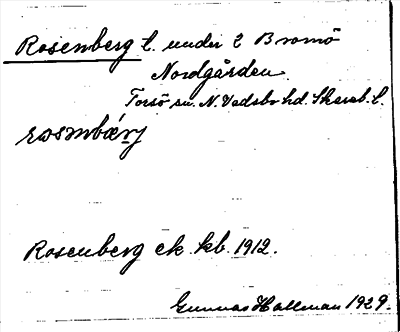 Rosenberg l. under 2 Bromö
Nordgården
Torsö sn. N. Vadsbo hd. Skarab. l.
rosmbærj
Rosenberg ek. kb. 1912.
Gunnar Hallman 1929.